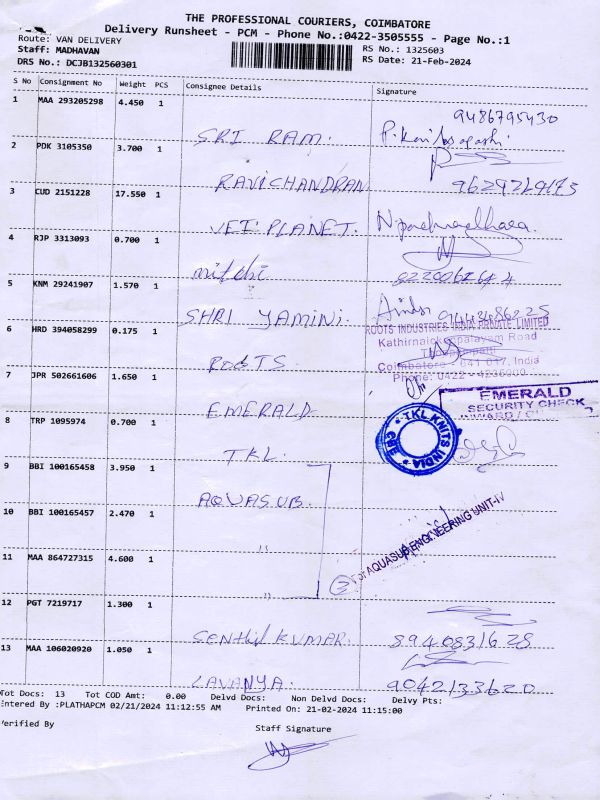 THE PROFESSIONAL COURIERS, COIMBATORE
Delivery Runsheet - PCM - Phone No.:0422-3505555 - Page No.:1
Route: VAN DELIVERY
RS No.: 1325603
Staff: MADHAVAN
RS Date: 21-Feb-2024
DRS No.: DCJB132560301
S No Consignment No Weight PCS Consignee Details Signature
1 MAA 293205298 4.450 1 SRI RAM. 9486795430
2 PDK 3105350 3.700 1 RAVICHANDRAN
3 CUD 2151228 17.550 1 VET PLANET.
4 RJP 3313093 0.700 1
5 KNM 29241907 1.570 1 SHRI YAMINI.
6 HRD 394058299 0.175 1 ROOTS
ROOTS INDUSTRIES INDIA PRIVATE LIMITED
Kathirnaickenpalayam Road
Coimbatore - 641 017, India
Phone: 0422 - 4236000
7 JPR 502661606 1.650 1 EMERALD
EMERALD
SECURITY CHECK
8 TRP 1095974 0.700 1 TKL.
TKL KNITS INDIA
9 BBI 100165458 3.950 1 AQUASUB.
10 BBI 100165457 2.470 1 "
For AQUASUB ENGINEERING UNIT-IV
11 MAA 864727315 4.600 1 "
12 PGT 7219717 1.300 1 SENTHIL KUMAR. 8940831628
13 MAA 106020920 1.050 1 LAVANYA. 9042133620
Tot Docs: 13 Tot COD Amt: 0.00 Delvd Docs: Non Delvd Docs: Delvy Pts:
Entered By :PLATHAPCM 02/21/2024 11:12:55 AM Printed On: 21-02-2024 11:15:00
Verified By
Staff Signature